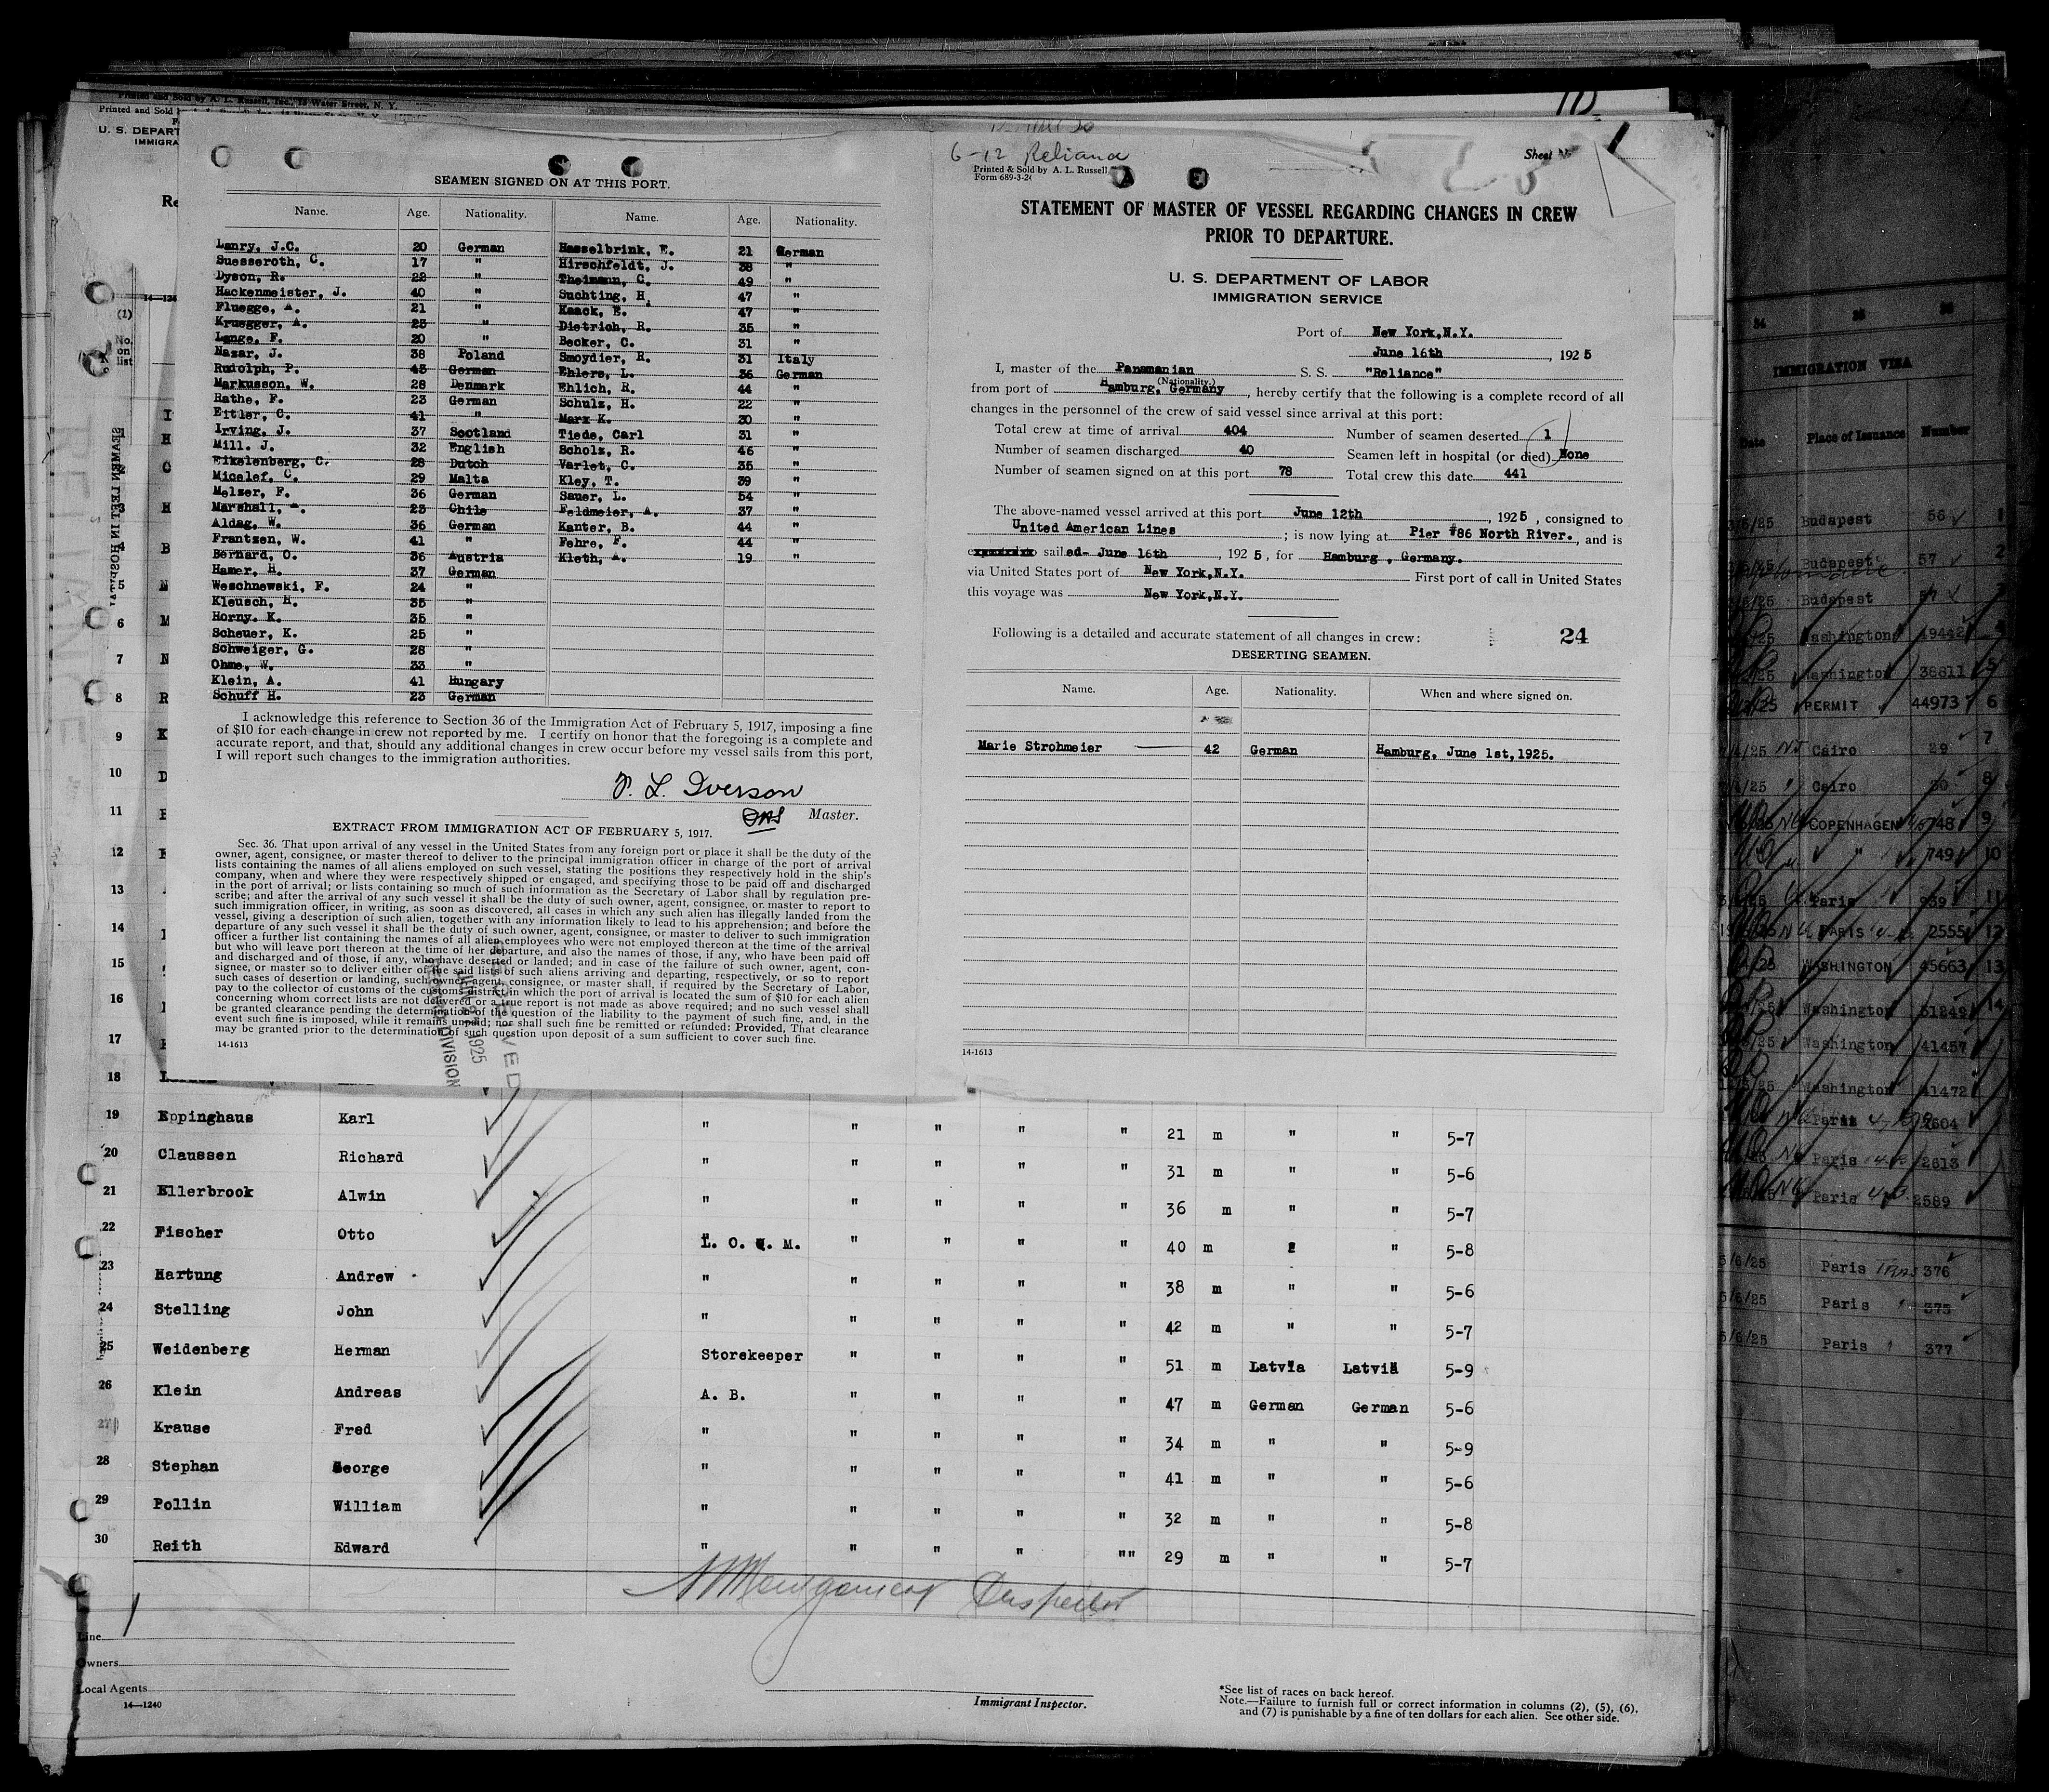 Printed and Sold by A. L. Russell, Inc., 15 Water Street, N. Y.
Printed and Sold
U. S. DEPART
IMMIGRA
SEAMEN SIGNED ON AT THIS PORT.
Name. Age. Nationality. Name. Age. Nationality.
Lanry, J.C. 20 German Hasselbrink, E. 21 German
Suesseroth, C. 17 " Hirschfeldt, J. 38 "
Dyson, R. 22 " Theimann, C. 49 "
Hackenmeister, J. 40 " Suchting, H. 47 "
Fluegge, A. 21 " Kaack, E. 47 "
Kruegger, A. 25 " Dietrich, R. 35 "
Lange, F. 20 " Becker, C. 31 "
Nazar, J. 38 Poland Smoydier, R. 31 Italy
Rudolph, P. 43 German Ehlers, L. 36 German
Markusson, W. 28 Denmark Ehlich, R. 44 "
Rathe, F. 23 German Schulz, H. 22 "
Eitler, C. 41 " Marx K. 30 "
Irving, J. 37 Scotland Tiede, Carl 31 "
Mill. J. 32 English Scholz, R. 46 "
Eikelenberg, C. 28 Dutch Varlet, C. 35 "
Micelef, C. 29 Malta Kley, T. 39 "
Melzer, F. 36 German Sauer, L. 54 "
Marshall, A. 23 Chile Feldmeier, A. 37 "
Aldag, W. 36 German Kanter, B. 44 "
Frantzen, W. 41 " Fehre, F. 44 "
Bernard, O. 36 Austria Kleth, A. 19 "
Hamer, H. 37 German
Weschnewski, F. 24 "
Kleusch, H. 35 "
Horny. K. 35 "
Scheuer, K. 25 "
Schweiger, G. 28 "
Ohme, W. 33 "
Klein, A. 41 Hungary
Schuff H. 23 German
I acknowledge this reference to Section 36 of the Immigration Act of February 5, 1917, imposing a fine
of $10 for each change in crew not reported by me. I certify on honor that the foregoing is a complete and
accurate report, and that, should any additional changes in crew occur before my vessel sails from this port,
I will report such changes to the immigration authorities.
T. L. Iverson
Master.
EXTRACT FROM IMMIGRATION ACT OF FEBRUARY 5, 1917.
Sec. 36. That upon arrival of any vessel in the United States from any foreign port or place it shall be the duty of the
owner, agent, consignee, or master thereof to deliver to the principal immigration officer in charge of the port of arrival
lists containing the names of all aliens employed on such vessel, stating the positions they respectively hold in the ship's
company, when and where they were respectively shipped or engaged, and specifying those to be paid off and discharged
in the port of arrival; or lists containing so much of such information as the Secretary of Labor shall by regulation pre-
scribe; and after the arrival of any such vessel it shall be the duty of such owner, agent, consignee, or master to report to
such immigration officer, in writing, as soon as discovered, all cases in which any such alien has illegally landed from the
vessel, giving a description of such alien, together with any information likely to lead to his apprehension; and before the
departure of any such vessel it shall be the duty of such owner, agent, consignee, or master to deliver to such immigration
officer a further list containing the names of all alien employees who were not employed thereon at the time of the arrival
but who will leave port thereon at the time of her departure, and also the names of those, if any, who have been paid off
and discharged and of those, if any, who have deserted or landed; and in case of the failure of such owner, agent, con-
signee, or master so to deliver either of the said lists of such aliens arriving and departing, respectively, or so to report
such cases of desertion or landing, such owner, agent, consignee, or master shall, if required by the Secretary of Labor,
pay to the collector of customs of the customs district in which the port of arrival is located the sum of $10 for each alien
concerning whom correct lists are not delivered or a true report is not made as above required; and no such vessel shall
be granted clearance pending the determination of the question of the liability to the payment of such fine, and, in the
event such fine is imposed, while it remains unpaid; nor shall such fine be remitted or refunded: Provided, That clearance
may be granted prior to the determination of such question upon deposit of a sum sufficient to cover such fine.
14-1613
RECEIVED
1925
DIVISION
6-12 Reliance
Printed & Sold by A. L. Russell,
Form 689-3-24
Sheet No 1
STATEMENT OF MASTER OF VESSEL REGARDING CHANGES IN CREW
PRIOR TO DEPARTURE.
U. S. DEPARTMENT OF LABOR
IMMIGRATION SERVICE
Port of New York,N.Y.
June 16th, 1925
I, master of the Panamanian S. S. "Reliance"
(Nationality.)
from port of Hamburg, Germany, hereby certify that the following is a complete record of all
changes in the personnel of the crew of said vessel since arrival at this port:
Total crew at time of arrival 404 Number of seamen deserted 1
Number of seamen discharged 40 Seamen left in hospital (or died) None
Number of seamen signed on at this port 78 Total crew this date 441
The above-named vessel arrived at this port June 12th, 1925, consigned to
United American Lines; is now lying at Pier #86 North River., and is
sailed- June 16th, 1925, for Hamburg , Germany.
via United States port of New York,N.Y. First port of call in United States
this voyage was New York,N.Y.
Following is a detailed and accurate statement of all changes in crew: 24
DESERTING SEAMEN.
Name. Age. Nationality. When and where signed on.
Marie Strohmeier 42 German Hamburg, June 1st,1925.
14-1613
14—124
(1)
No. on list
SEAMEN LEFT IN HOSPITAL
RELIANCE
5 N
6 M
7 N
8 R
9 K
10 D
11
12
13
14
15
16
17
18
19 Eppinghaus Karl " " " " " 21 m " " 5-7
20 Claussen Richard " " " " " 31 m " " 5-6
21 Ellerbrook Alwin " " " " " 36 m " " 5-7
22 Fischer Otto L. O. T. M. " " " " 40 m " " 5-8
23 Hartung Andrew " " " " " 38 m " " 5-6
24 Stelling John " " " " " 42 m " " 5-7
25 Weidenberg Herman Storekeeper " " " " 51 m Latvia Latvia 5-9
26 Klein Andreas A. B. " " " " 47 m German German 5-6
27 Krause Fred " " " " " 34 m " " 5-9
28 Stephan George " " " " " 41 m " " 5-6
29 Pollin William " " " " " 32 m " " 5-8
30 Reith Edward " " " " "" 29 m " " 5-7
Montgomery Inspector
Line
Owners
Local Agents
14—1240
Immigrant Inspector.
*See list of races on back hereof.
Note.—Failure to furnish full or correct information in columns (2), (5), (6),
and (7) is punishable by a fine of ten dollars for each alien. See other side.
24 25 26
IMMIGRATION VISA
Date Place of Issuance Number
Budapest 56 1
Budapest 57 2
Budapest
Washington 49442 4
Washington 38811 5
PERMIT 44973 6
Cairo 29 7
Cairo 30 8
COPENHAGEN 748 9
" 749 10
Paris 939 11
PARIS 2555 12
WASHINGTON 45663 13
Washington 51249 14
Washington 41457
Washington 41472
Paris 2604
Paris 2613
Paris 2589
5/6/25 Paris 376
5/6/25 Paris 375
5/6/25 Paris 377